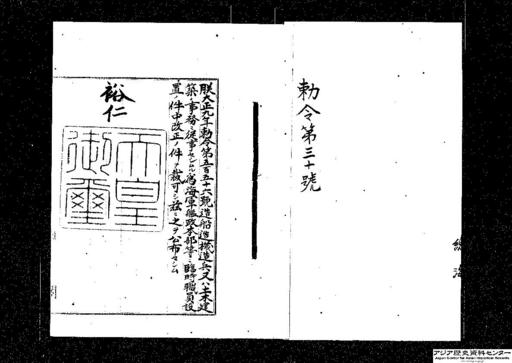 勅令第三十號
朕大正九年勅令第五百五十六號造船造機造兵又ハ土木建
築ノ事務ニ從事セシムル爲海軍艦政本部等ニ臨時職員設
置ノ件中改正ノ件ヲ裁可シ茲ニ之ヲ公布セシム
裕仁
天皇
御璽
アジア歴史資料センター
Japan Center for Asian Historical Records